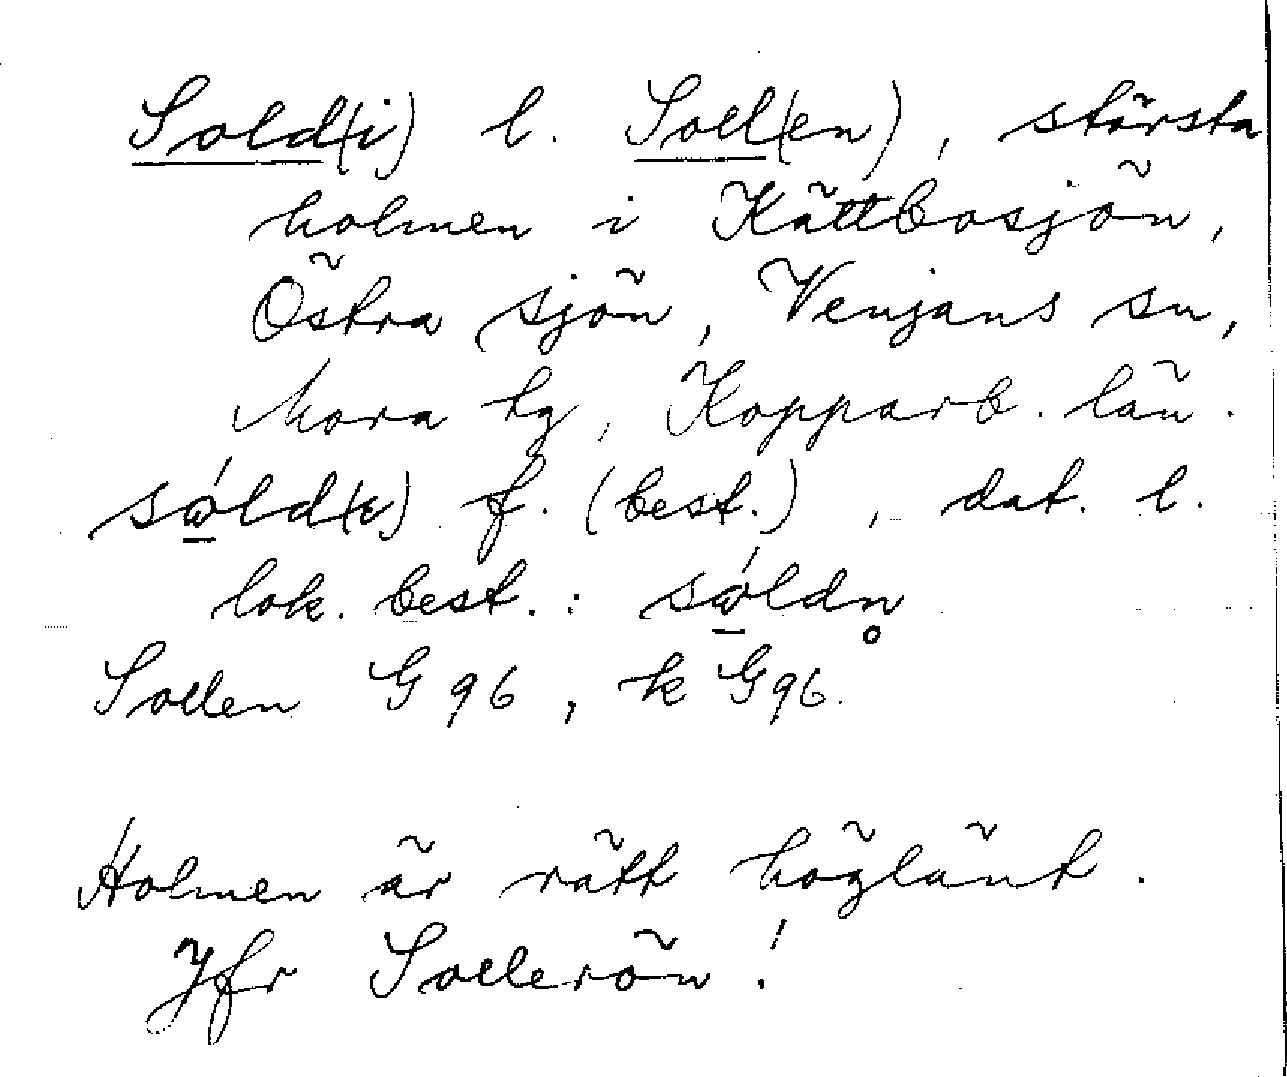 Sold(i) l. Soll(en), största
holmen i Kättbosjön,
Östra sjön, Venjans sn,
Mora tg, Kopparb. län.
sώ̠ld(ɩ) f. (best.), dat. l.
lok. best.: sώ̠ldn̥
Sollen G 96, k G 96.
Holmen är rätt höglänt.
Jfr Sollerön!